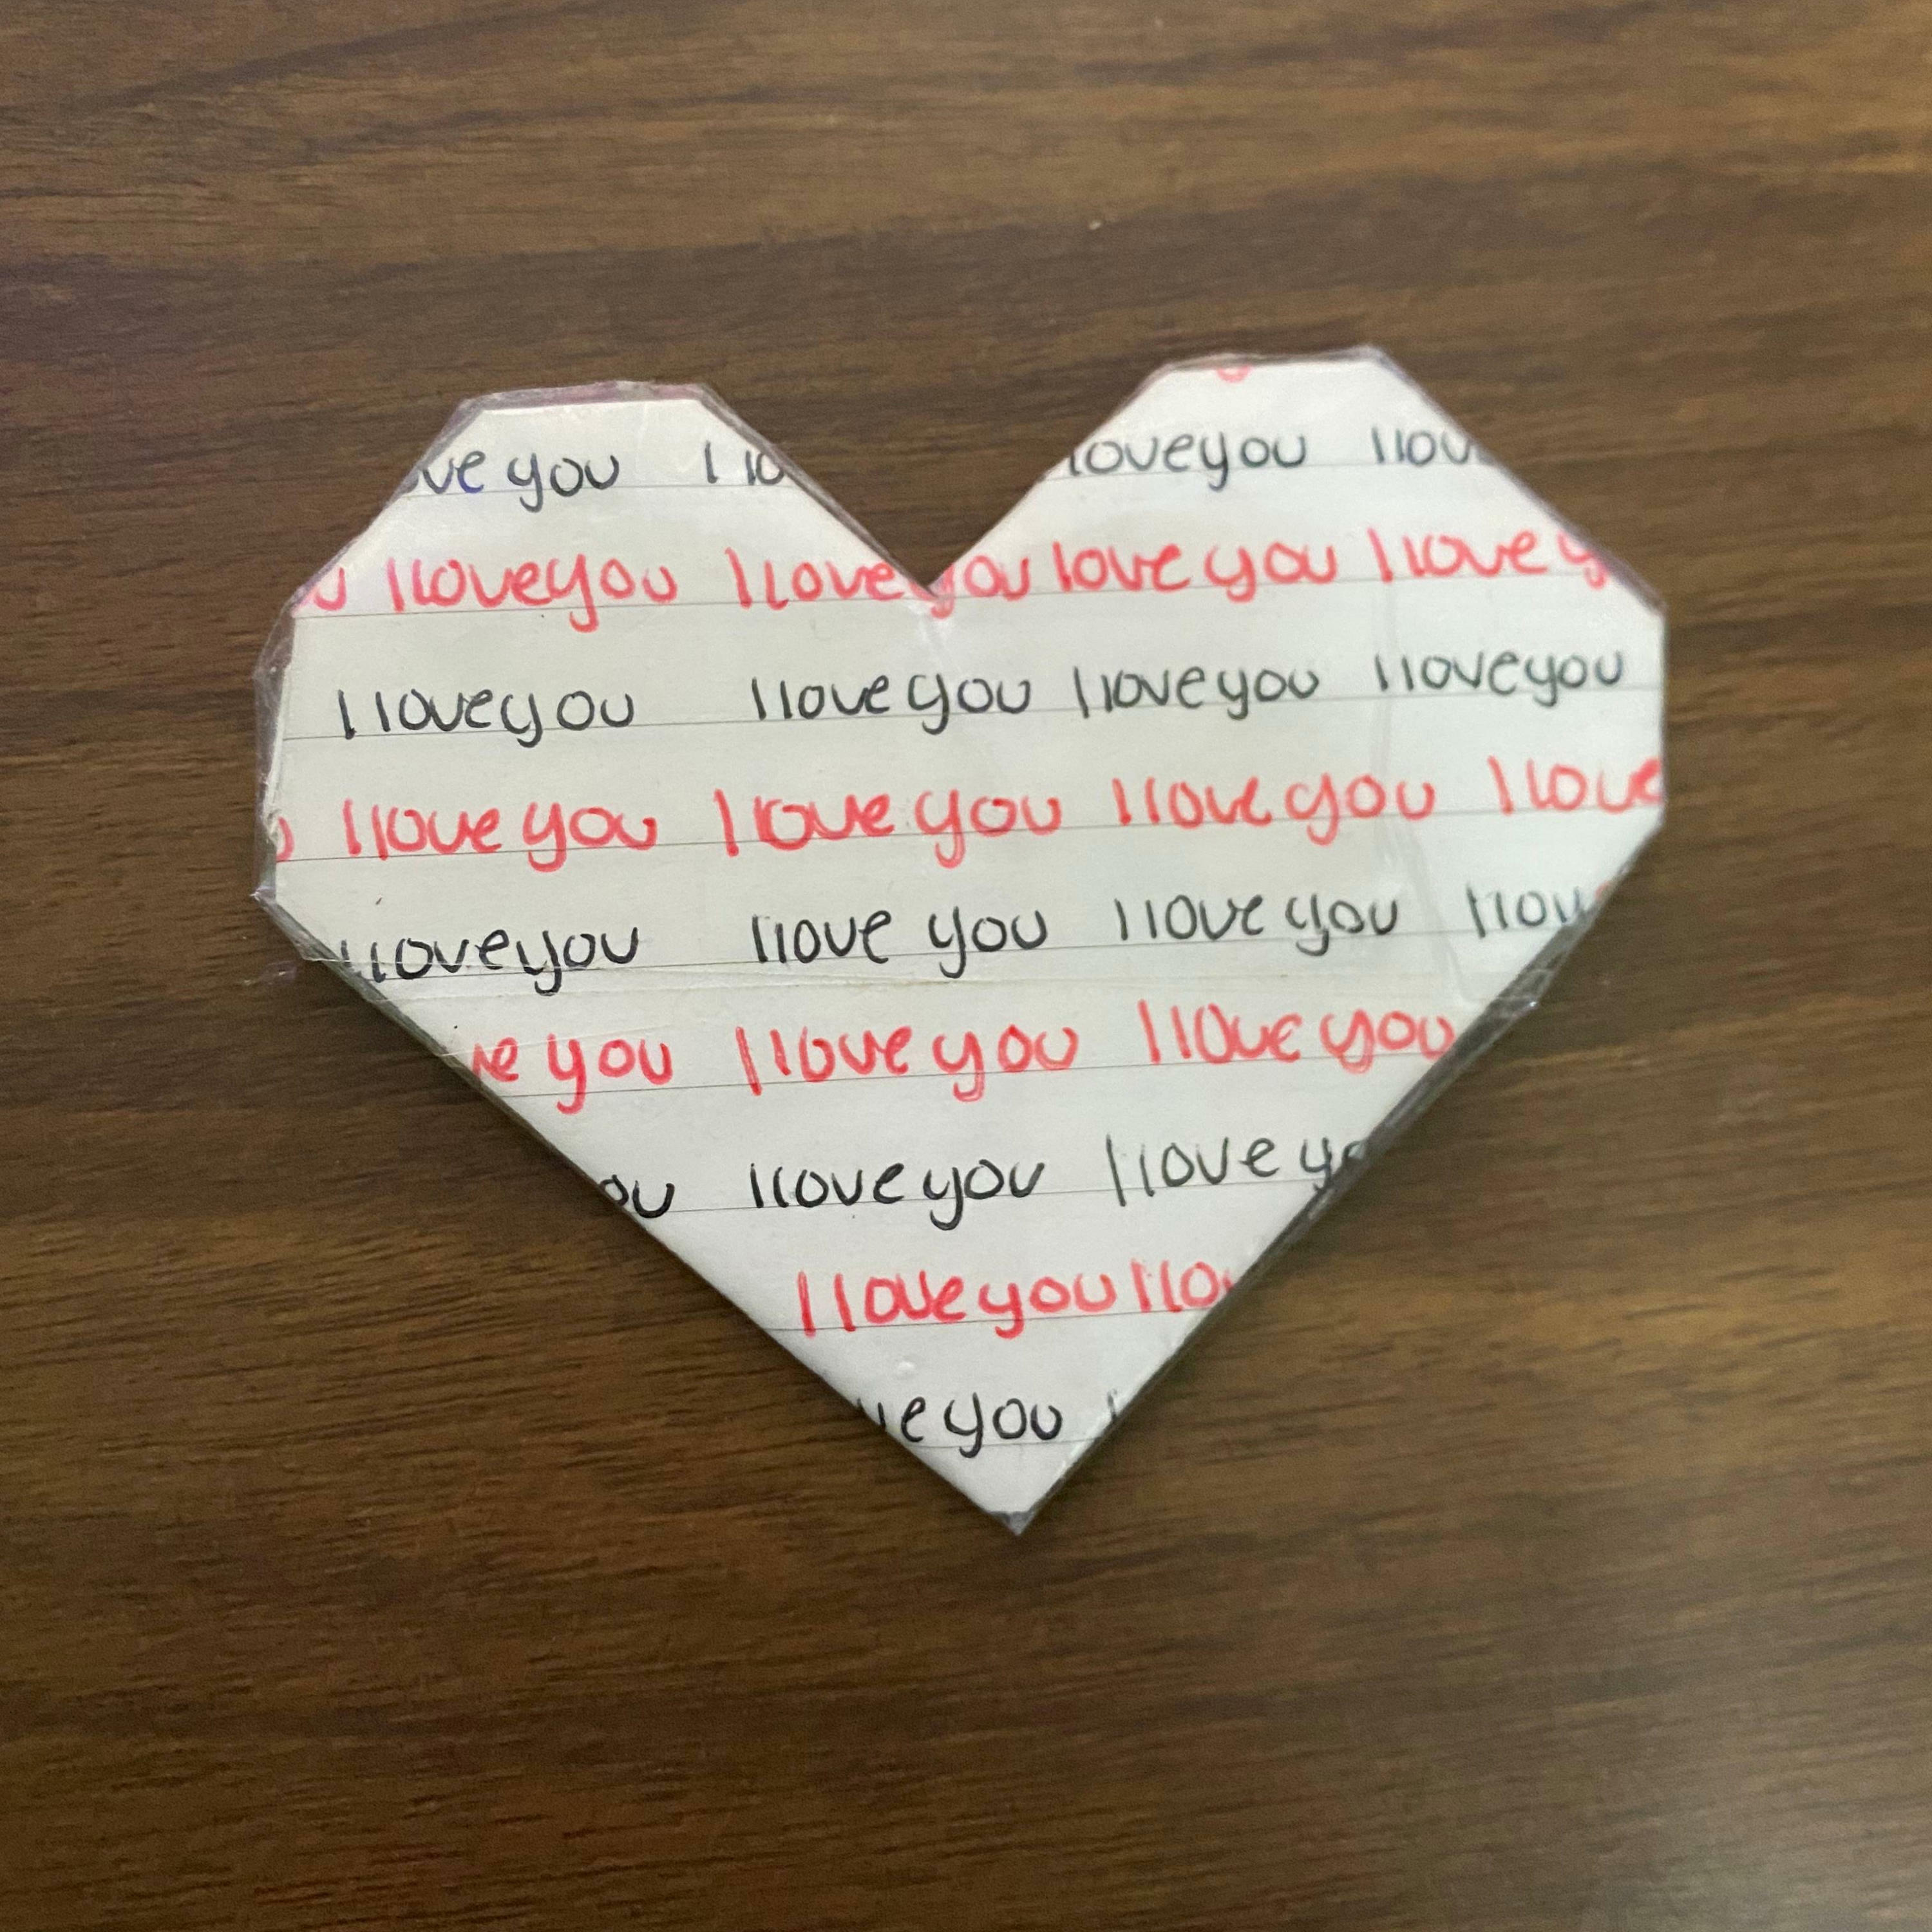 ve you I lo loveyou I lov
u I loveyou I love you love you I love y
I loveyou I love you I loveyou I loveyou
I love you I love you I love you I love
I loveyou I love you I love you I lov
ve you I love you I love you
ou I love you I love yo
I love you I lo
ve you I